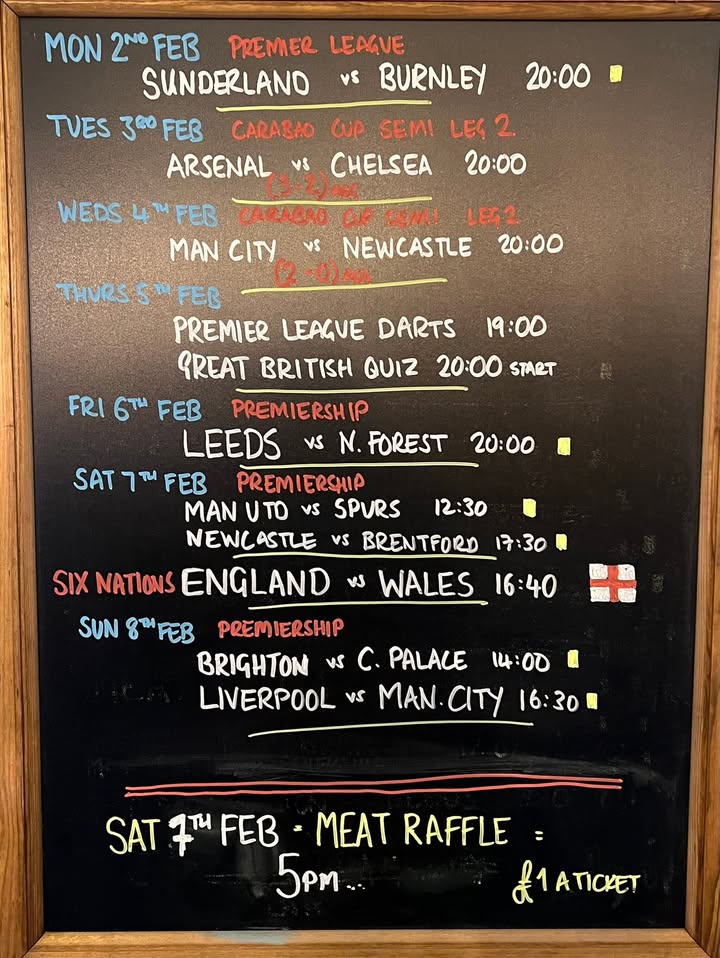 MON 2ND FEB PREMIER LEAGUE
SUNDERLAND vs BURNLEY 20:00
TUES 3RD FEB CARABAO CUP SEMI LEG 2
ARSENAL vs CHELSEA 20:00
(3-2) AGG
WEDS 4TH FEB CARABAO CUP SEMI LEG 2
MAN CITY vs NEWCASTLE 20:00
(2-0) AGG
THURS 5TH FEB
PREMIER LEAGUE DARTS 19:00
GREAT BRITISH QUIZ 20:00 START
FRI 6TH FEB PREMIERSHIP
LEEDS vs N. FOREST 20:00
SAT 7TH FEB PREMIERSHIP
MAN UTD vs SPURS 12:30
NEWCASTLE vs BRENTFORD 17:30
SIX NATIONS ENGLAND vs WALES 16:40
SUN 8TH FEB PREMIERSHIP
BRIGHTON vs C. PALACE 14:00
LIVERPOOL vs MAN. CITY 16:30
SAT 7TH FEB - MEAT RAFFLE =
5PM...
£1 A TICKET